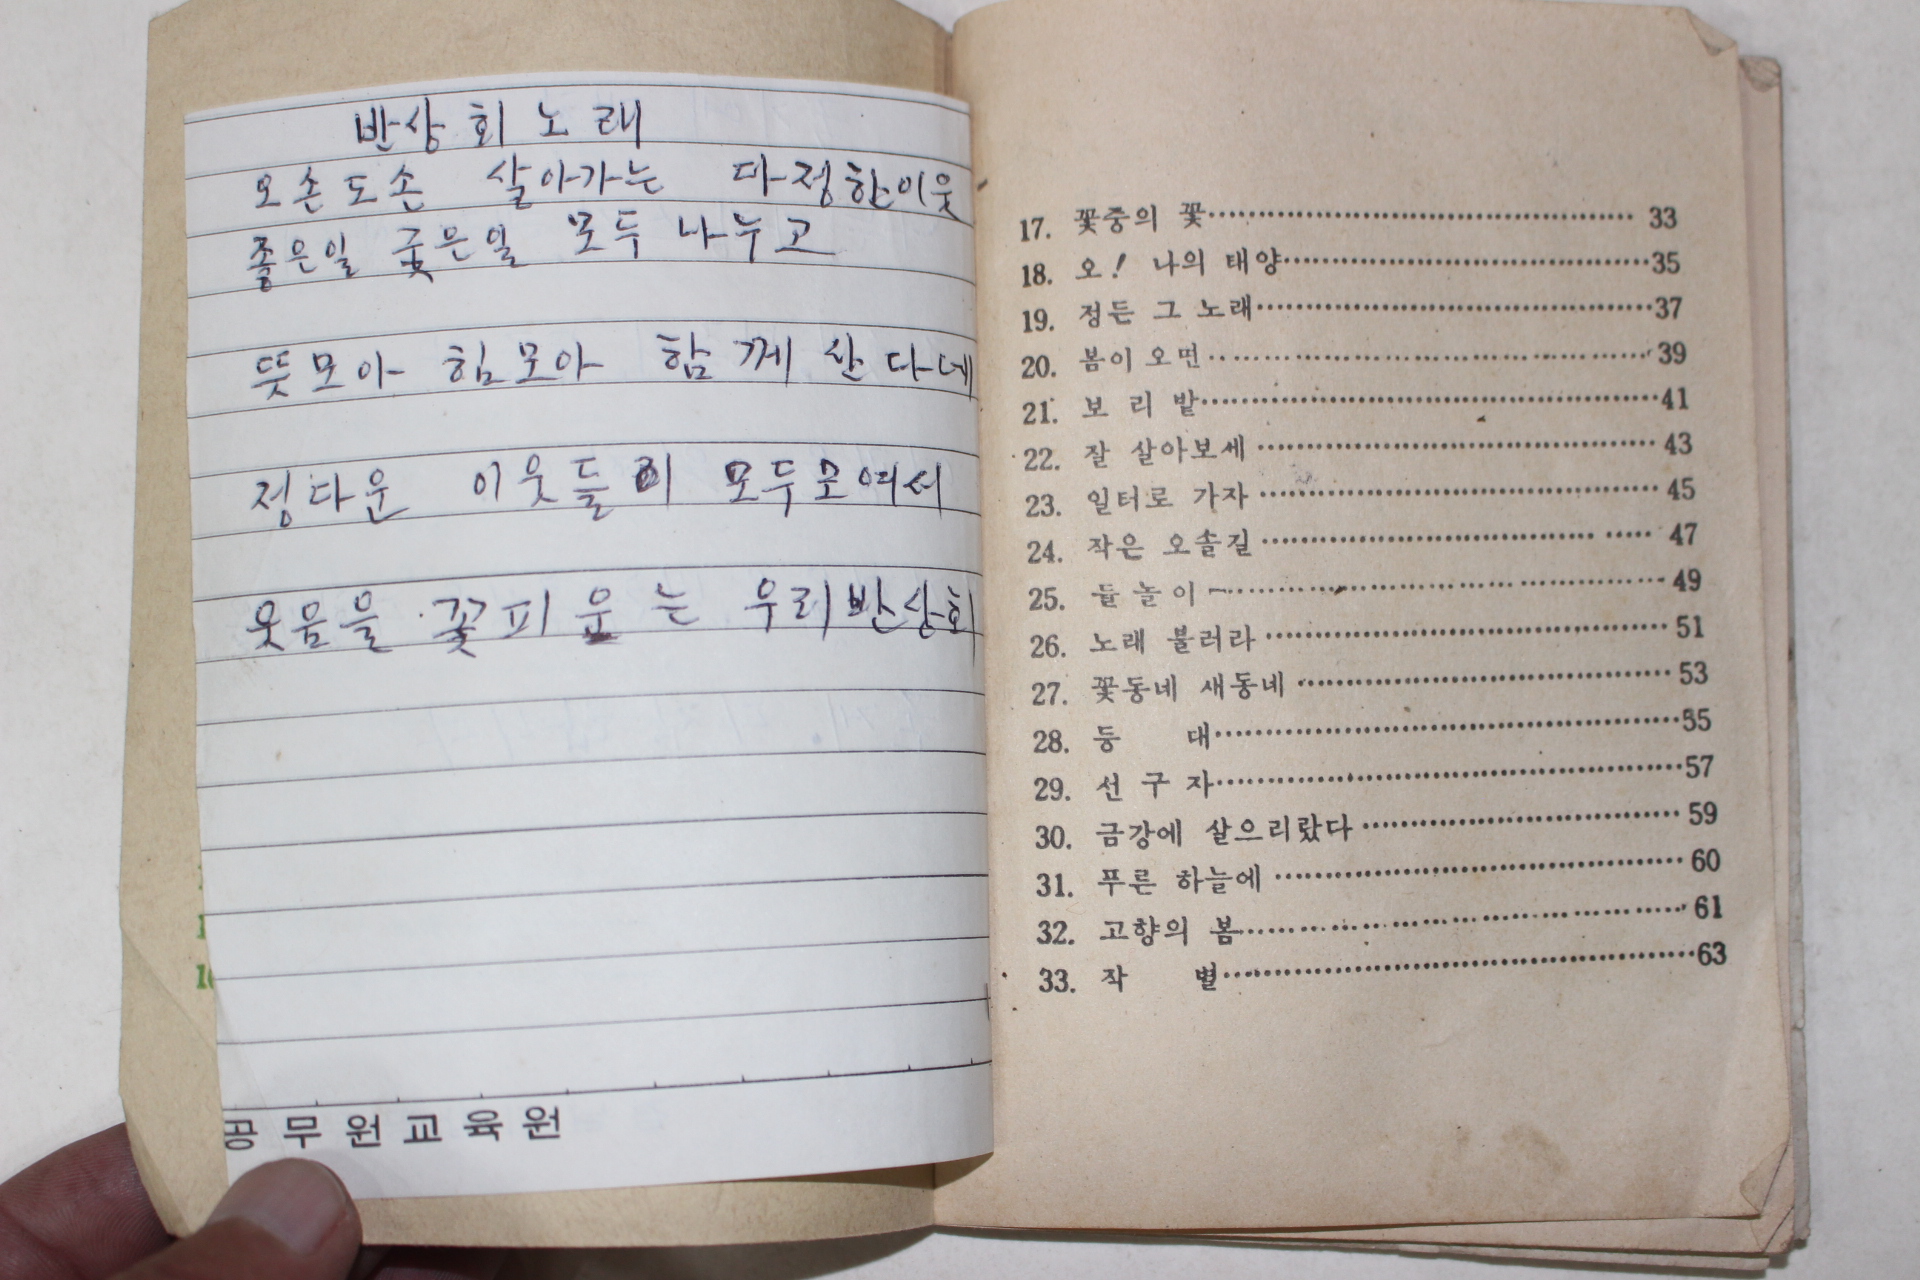 반상회 노래
오손도손 살아가는 다정한이웃
좋은일 궂은일 모두 나누고
뜻모아 힘모아 함께 산다네
정다운 이웃들이 모두모여서
웃음을 꽃피우는 우리반상회
공무원교육원
17. 꽃중의 꽃 33
18. 오! 나의 태양 35
19. 정든 그 노래 37
20. 봄이 오면 39
21. 보리밭 41
22. 잘 살아보세 43
23. 일터로 가자 45
24. 작은 오솔길 47
25. 들놀이 49
26. 노래 불러라 51
27. 꽃동네 새동네 53
28. 등 대 55
29. 선구자 57
30. 금강에 살으리랐다 59
31. 푸른 하늘에 60
32. 고향의 봄 61
33. 작 별 63